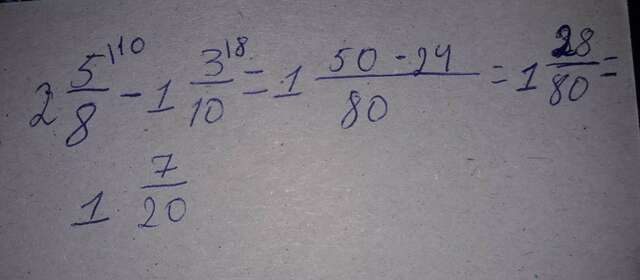 2 5/8 |10 - 1 3/10 |8 = 1 50-24/80 = 1 28/80 =
1 7/20